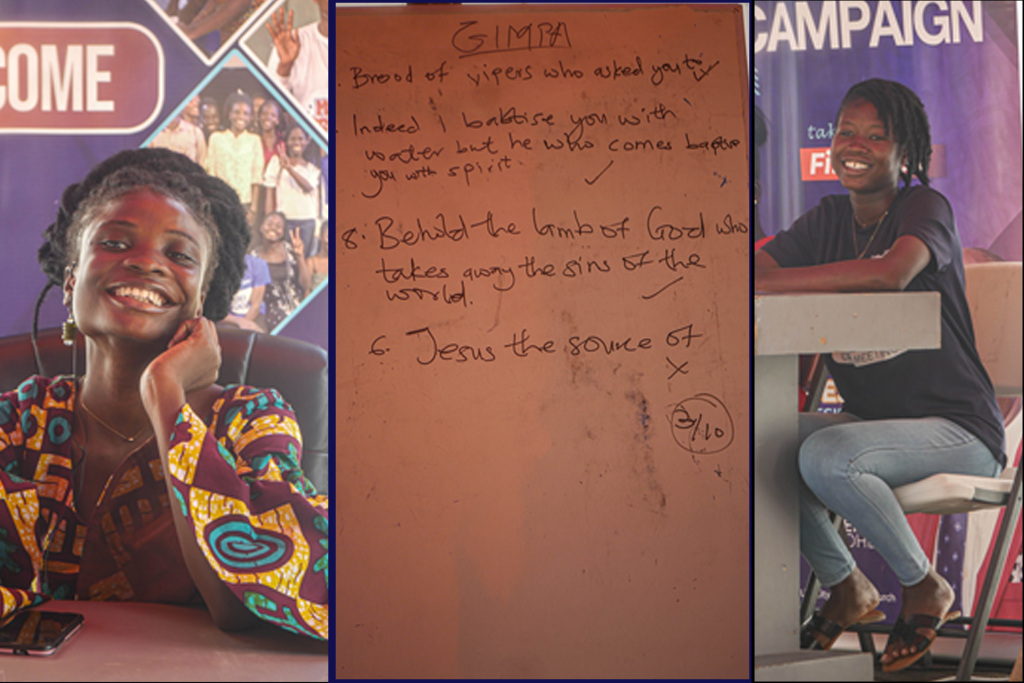 COME
GIMPA
Brood of vipers who asked you to
Indeed I babtise you with
water but he who comes baptise
you with spirit.
8. Behold the lamb of God who
takes away the sins of the
world.
6. Jesus the source of
3/10
CAMPAIGN
tak
Fi
MEETIN